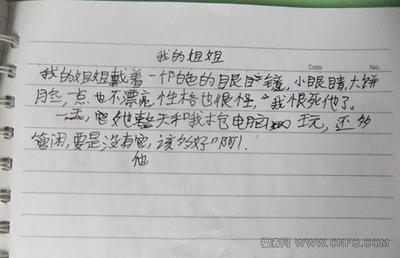 我的姐姐
Date
No.
我的姐姐戴着一个白色的目艮目竟,小眼睛,大饼
月色,一点也不漂亮,性格也很怪,我恨死他了。
一天,她整天和我抢电脑玩,还多
管闲,要是没有它,该多好啊!
他
猫猫网 WWW.CNFG.COM